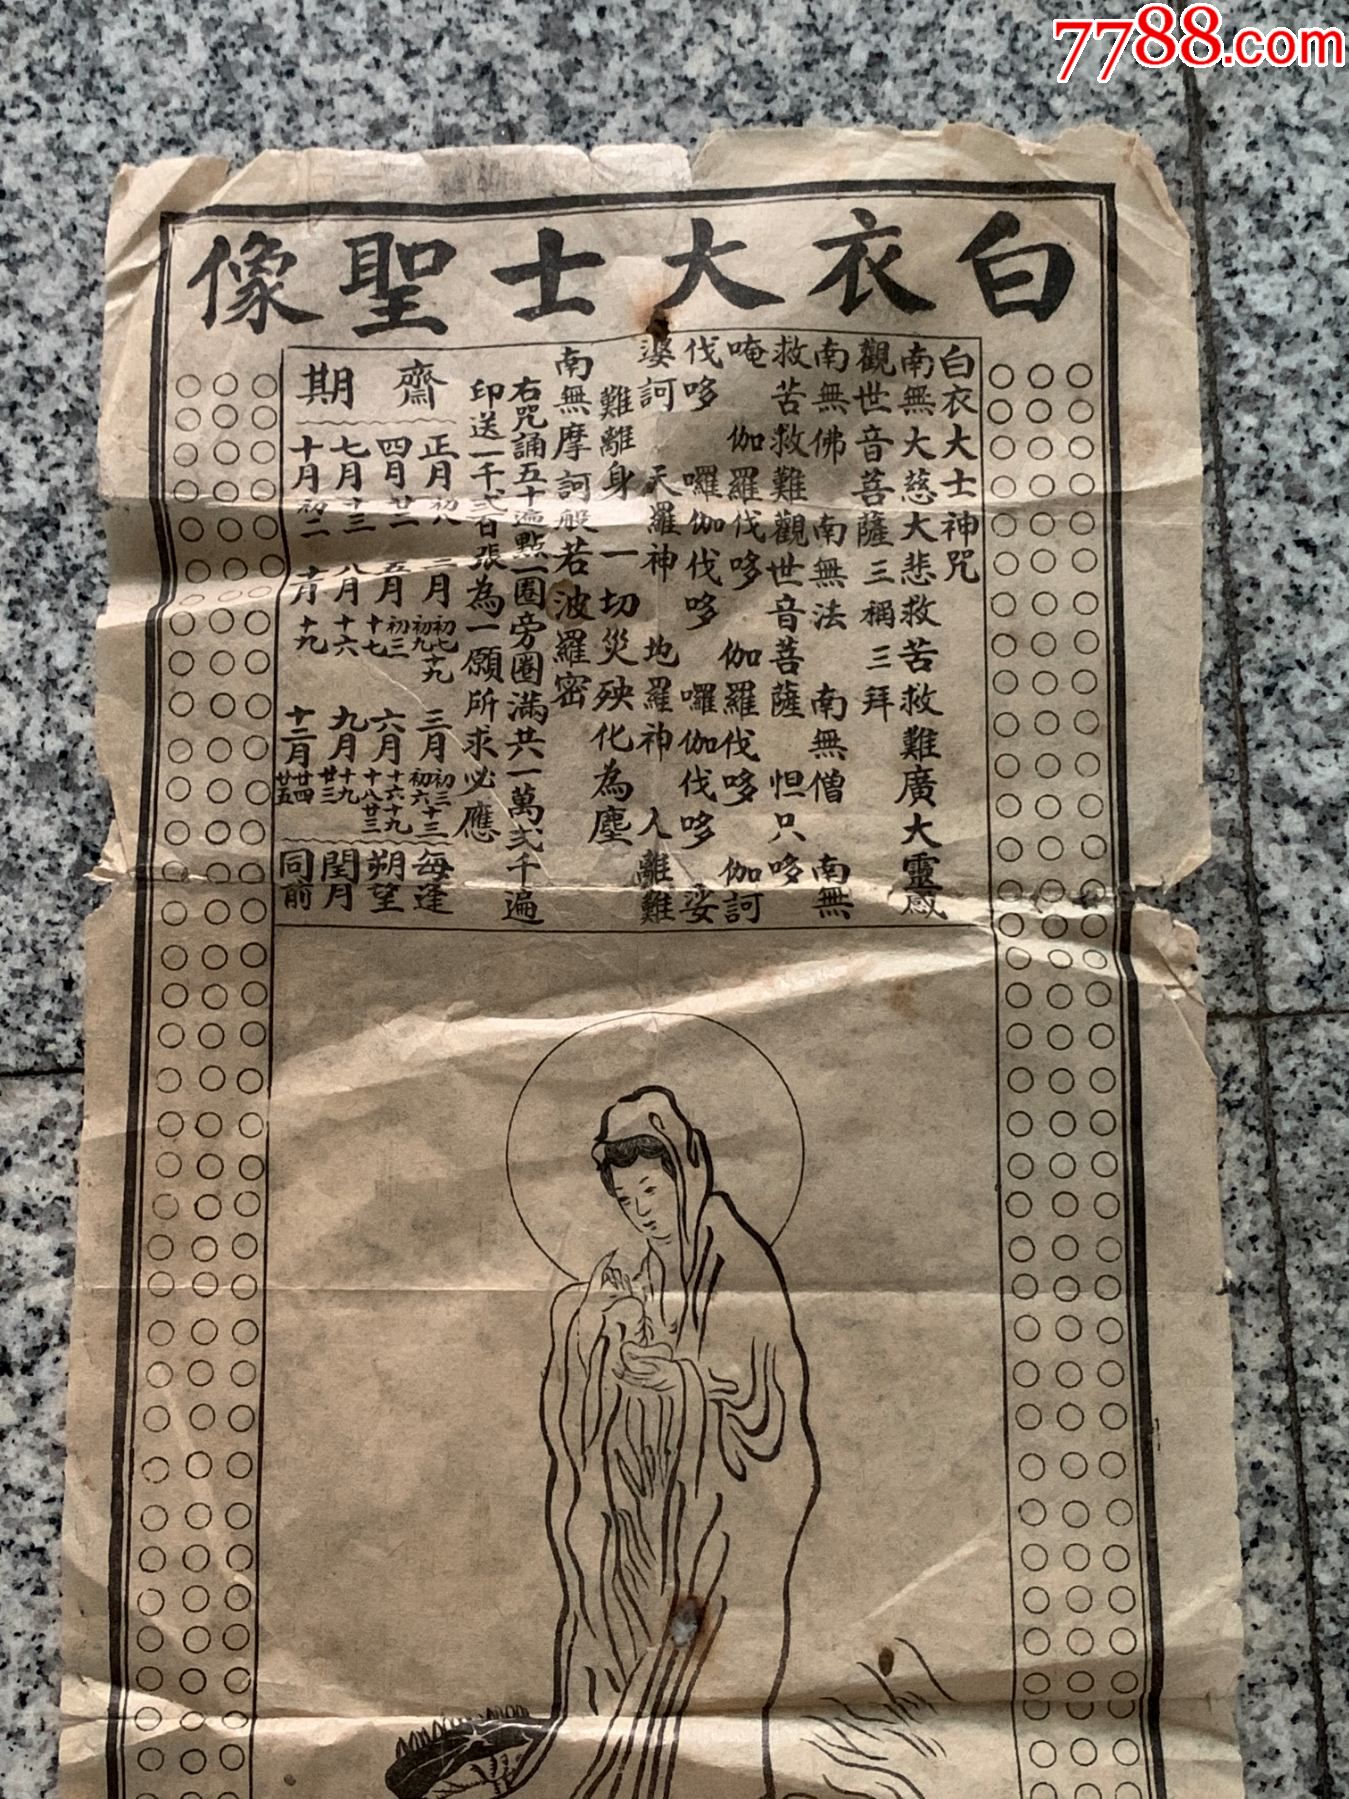 7788.com
白衣大士聖像
白衣大士神咒
南無大慈大悲救苦救難廣大靈感
觀世音菩薩三稱三拜
南無佛 南無法 南無僧 南無
救苦救難觀世音菩薩 怛只哆
唵 伽羅伐哆 伽羅伐哆 伽訶
伐哆 囉伽伐哆 囉伽伐哆 娑
婆訶 天羅神 地羅神 人離難
難離身 一切災殃化為塵
南無摩訶般若波羅密
右咒誦五十遍點一圈旁圈滿共一萬弍千遍
印送一千弍百張為一願所求必應
齋期
正月初八 二月初七初九十九 三月初三初六十三
四月廿二 五月初三十七 六月十六十九十八廿三
七月十三 八月十六 九月十九廿三
十月初二 十一月十九 十二月廿四廿五
每逢
朔望
閏月
同前